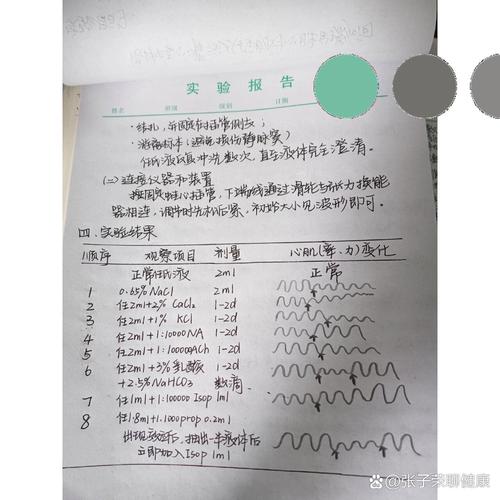 实验报告
姓名 班级 组别 日期
结扎，并固定在插管侧钩；
游离标本（避免损伤静脉窦）
任氏液反复冲洗数次，直至液体完全澄清。
（二）连接仪器和装置
按固定蛙心插管，下端线通过滑轮与张力换能
器相连，调节时先松后紧，初始大小见波形即可。
四、实验结果
顺序 观察项目 剂量 心肌(率、力)变化
正常任氏液 2ml 正常
1 0.65%NaCl 2ml
2 任2ml+2% CaCl₂ 1-2d
3 任2ml+1% KCl 1-2d
4 任2ml+1:10000NA 1-2d
5 任2ml+1:100000ACh 1-2d
6 任2ml+3%乳酸 1-2d
+2.5%NaHCO₃ 数滴
7 任1ml+1:10000 Isop 1ml
8 任1.8ml+1:1000prop 0.2ml
出现效应后，抽出一半液体后
立即加入Isop 1ml
@张子荣聊健康